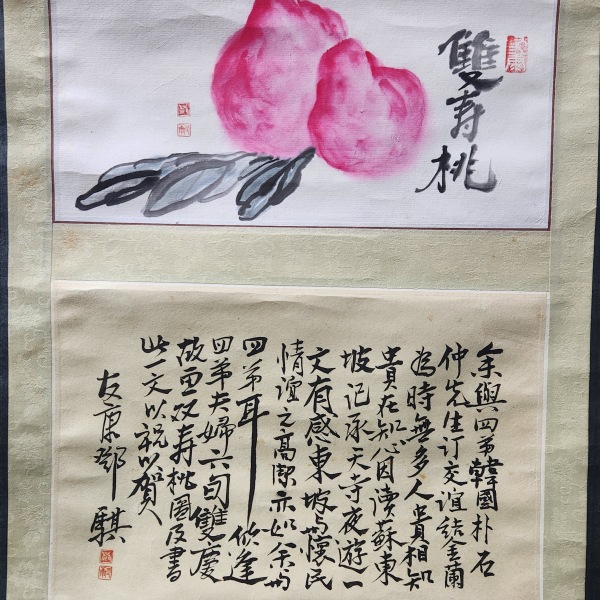 雙寿桃
余與四弟韓國朴石
仲先生订交谊结金蘭
為時無多人貴相知
貴在知心因讀蘇東
坡记承天寺夜遊一
文有感東坡与懷民
情誼之高潔亦如余与
四弟耳 欣逢
四弟夫婦六旬雙慶
故画双寿桃图及書
此一文以祝以贺
友康鄧騏